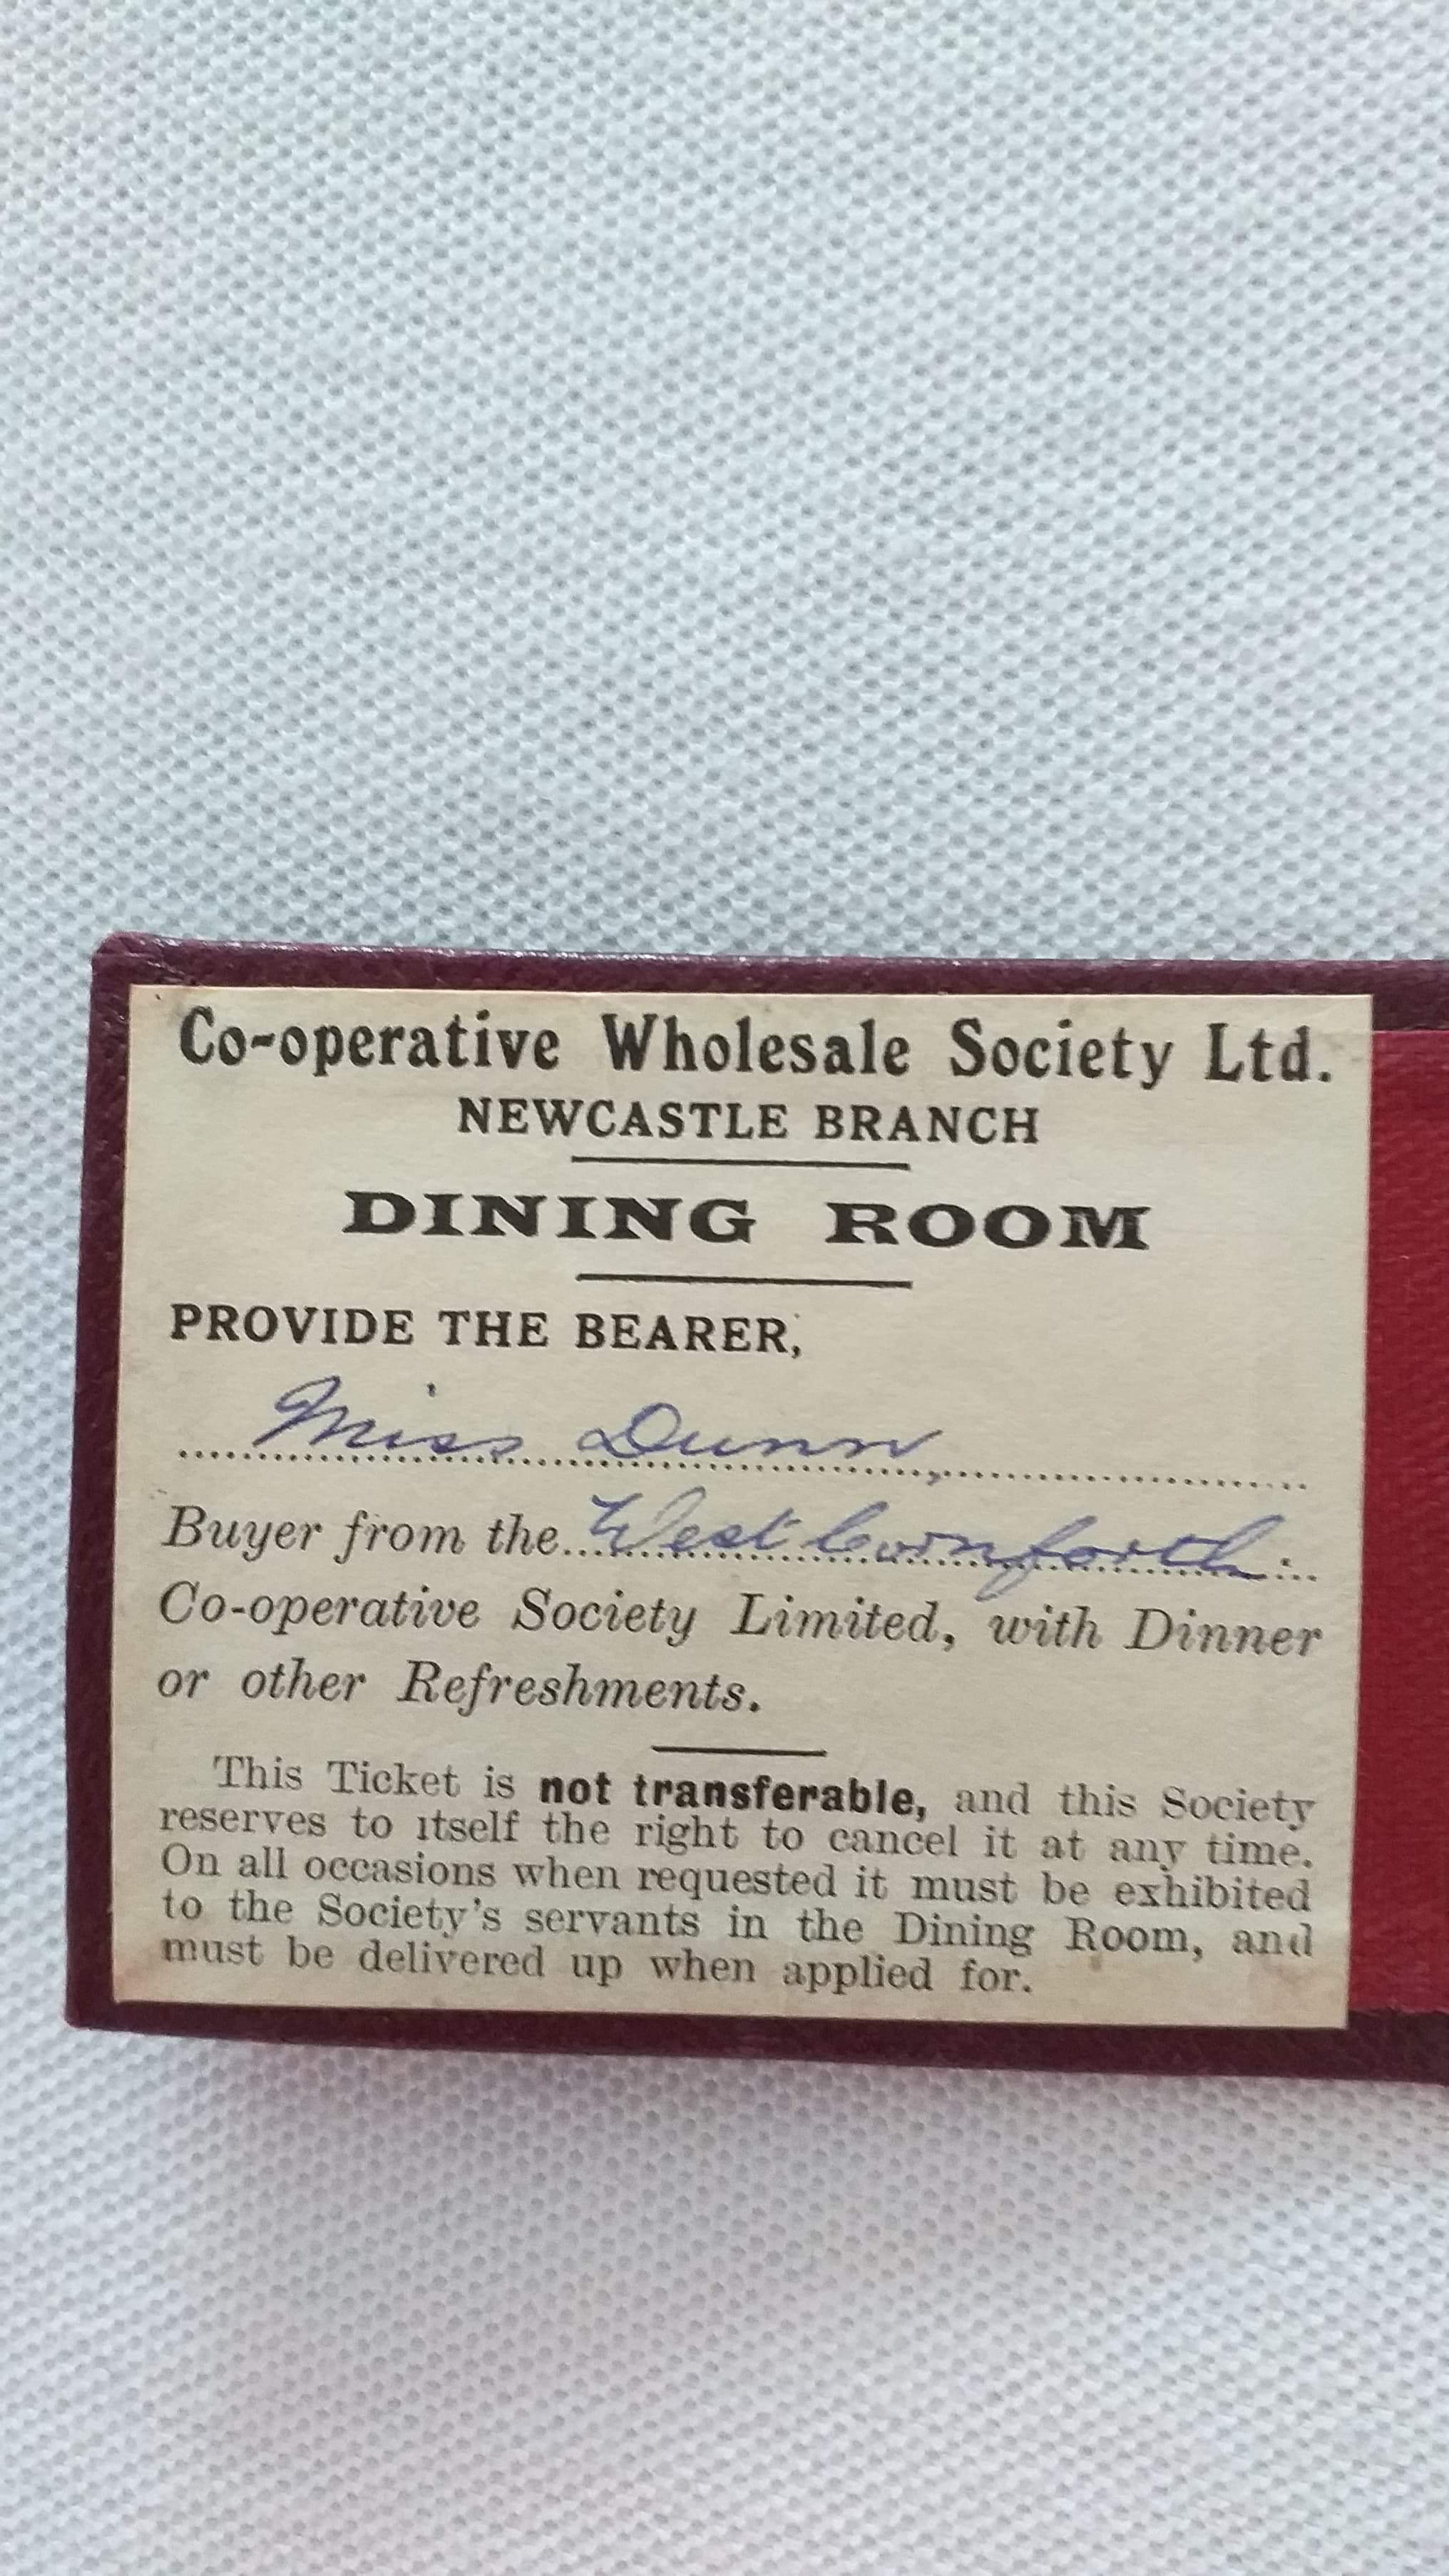 Co-operative Wholesale Society Ltd.
NEWCASTLE BRANCH
DINING ROOM
PROVIDE THE BEARER,
Miss Dunn,
Buyer from the West Cornforth
Co-operative Society Limited, with Dinner
or other Refreshments.
This Ticket is not transferable, and this Society
reserves to itself the right to cancel it at any time.
On all occasions when requested it must be exhibited
to the Society's servants in the Dining Room, and
must be delivered up when applied for.